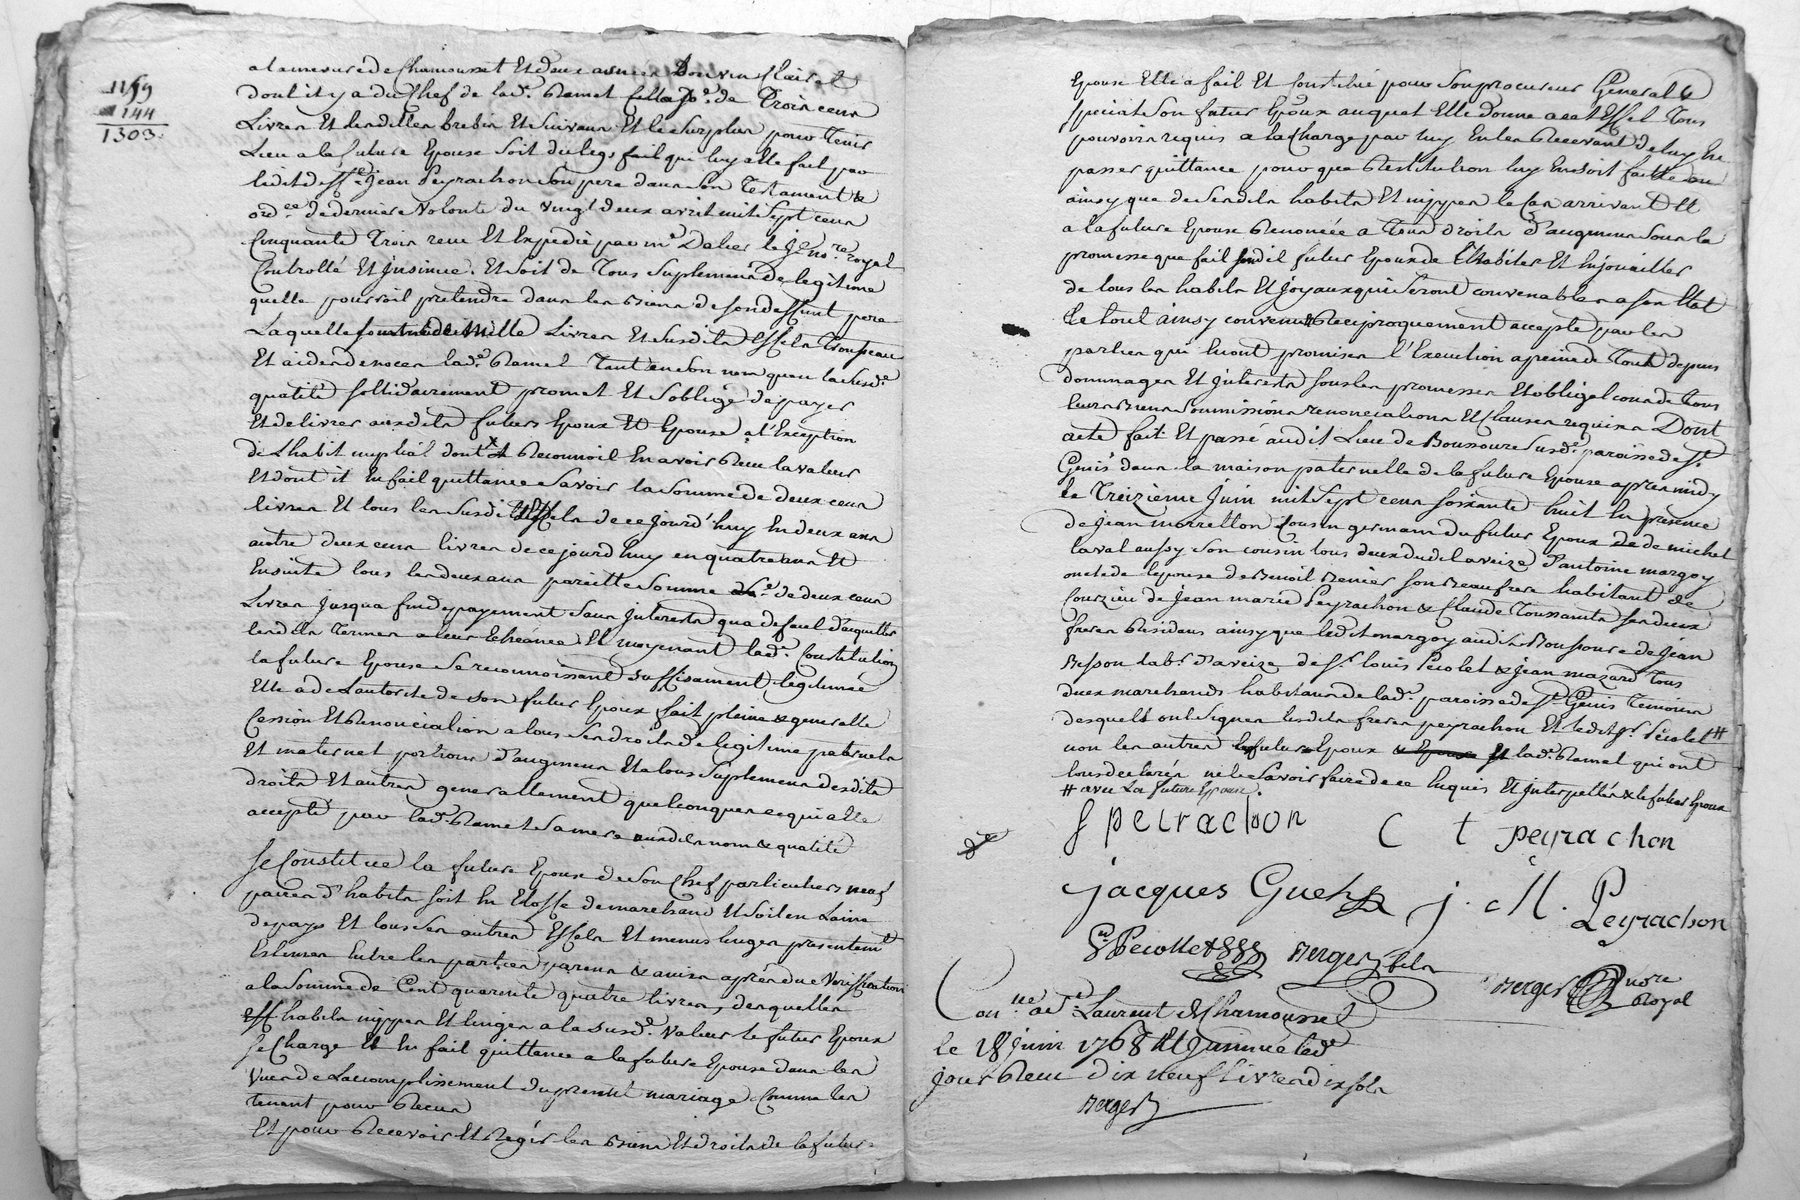 1159
144
1303
a la mesure de Chamousset Et deux asnées Bon vin Clairet
dont il y a du Chef de lad.e Ramel de Trois cens
Livres Et lesdittes brebis Et Suivans Et le Surplus pour Tenir
Lieu a la future Epouse Soit du legs fait qui luy a été fait par
ledit deff.t Jean Peyrachon Son pere dans Son Testament &
ord.ce de derniere Volonté du vingt deux avril mil Sept cens
Cinquante Trois receu Et Expedié par m.e Dalier le J.e no.re royal
Controllé Et Insinué. Et Soit de Tous Suplemens de legitime
quelle pourroit pretendre dans les Biens de Sondeffunt pere
Laquelle Somme de Mille Livres Et Susdits Effets Trousseau
Et aides de noces lad.e Ramel Tant en Son nom quen la Susd.e
qualité Sollidairement promet Et Soblige de payer
Et delivrer ausdits futurs Epoux Et Epouse a l'Exception
de Lhabit nuptial dont Reconnoit En avoir Receu la valeur
Et dont il En fait quittance Savoir la Somme de deux cens
livres Et tous les Susdits Effets de ce Jourd'huy En deux ans
autre deux cens livres de ce jourd'huy en quatre ans Et
Ensuite tous les deux ans pareille Somme de deux cens
Livres Jusqua fin de payement Sans Interests qua defaut d'acquitter
lesdits Termes a leur Echeance Et moyenant lad.e Constitution
la future Epouse Se reconnoissant Suffisament legitimée
Elle a de Lautorité de Son futur Epoux fait pleine & generalle
Cession Et Renonciation a tous Ses droits de legitime paternels
Et maternel portions d'augmens Et a tous Suplemens desdits
droits Et autres generallement quelconques ce qui a été
accepté par lad.e Ramel Sa mere ausdits nom & qualité
Se Constitue la future Epouse de Son Chef particuliers neuf
paires d'habits Soit En Etoffe de marchand Et Soit en Laine
de pays Et tous Ses autres Effets Et menus linges presentem.t
Estimés Entre les parties parens & amis après due Veriffication
a la Somme de Cent quarente quatre livres, desquelles
habits nippes Et linges a la Susd.e Valeur le futur Epoux
Se Charge Et En fait quittance a la future Epouse dans les
Vues de Laccomplissement du present mariage Comme les
tenant pour Receus
Et pour Recevoir Et Regir les Biens Et droits de la future
Epouse Elle a fait Et Constitué pour Son procureur General &
Special Son futur Epoux auquel Elle donne a cet Effet Tous
pouvoirs requis a la Charge par luy En les Recevant de luy En
passer quittance pour que Restitution luy En soit faitte
ainsy que de Sesdits habits Et nippes le Cas arrivant Et
a la future Epouse Renoncée a Tous droits d'augmens Sous la
promesse que fait Sondit futur Epoux de L'habiller Et Enjouailler
de tous les habits Et Joyaux qui Seront convenables a Son Etat
Le tout ainsy convenu Reciproquement accepté par les
parties qui En ont promises l'Execution a peine de Tous depens
dommages Et Interests Sous les promesses Et obligations de Tous
leurs Biens Soumissions renonciations Et Clauses requises Dont
acte fait Et passé audit Lieu de Boussoure Susd.e paroisse de S.t
Genis dans la maison paternelle de la future Epouse apres midy
le Treizieme Juin mil Sept cens Soixante huit En presence
de Jean morrellon Cousin germain du futur Epoux de michel
laval aussy Son cousin tous deux dudit aveize d'antoine margoy
oncle de lepouse de Benoit Benier Son Beau frere habitant de
Courzieu de Jean marie Peyrachon & Claude Toussaints Ses deux
freres Residans ainsy que ledit margoy audit Boussoure de Jean
Besson lab.r d'aveize de S.r louis Pecolet & Jean mazard Tous
deux marchands habitans de lad.e paroisse de S.t Genis Temoins
desquels ont Signés lesdits freres peyrachon Et ledit S.r Pecolet #
non les autres Epoux lad.e Ramel qui ont
tous declarés ne le Savoir faire de ce Enquis Et Interpellés & le futur Epoux
# avec La future Epouse.
f peirachon
C t peyrachon
jacques Gueh
j. M. Peyrachon
Pecollet
Berger
Berger no.re Royal
Con.llé a S.t Laurent de Chamousset
le 18 Juin 1768 Et Insinué led.
jour Receu dix neuf livres dix sols
Berger